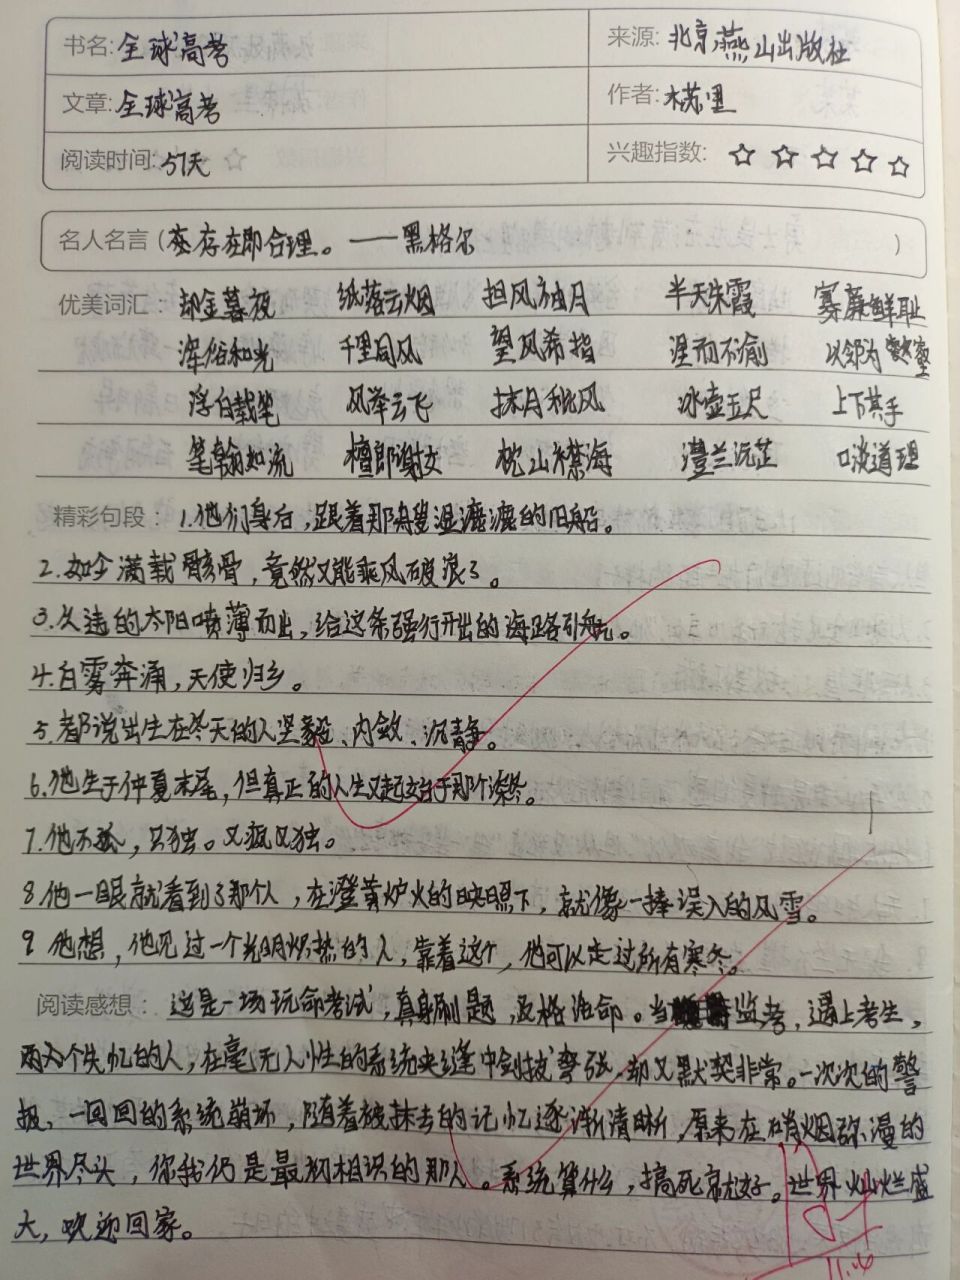 书名: 全球高考
来源: 北京燕山出版社
文章: 全球高考
作者: 木苏里
阅读时间: 57天
兴趣指数: ☆ ☆ ☆ ☆ ☆
名人名言 ( 存在即合理。——黑格尔 )
优美词汇: 却金暮夜 纸落云烟 担风袖月 半天朱霞 寡廉鲜耻
浑俗和光 千里同风 望风希指 涅而不渝 以邻为壑
浮白载笔 风举云飞 抹月秕风 冰壶玉尺 上下其手
笔翰如流 檀郎谢女 枕山襟海 澧兰沅芷 口谈道理
精彩句段: 1.他们身后,跟着那艘湿漉漉的旧船。
2.如今满载骸骨,竟然又能乘风破浪了。
3.久违的太阳喷薄而出,给这条强行开出的海路引航。
4.白雾奔涌,天使归乡。
5.都说出生在冬天的人坚毅、内敛、沉静。
6.他生于仲夏末尾,但真正的人生又起始于那个深冬。
7.他不孤,只独。又疯又独。
8.他一眼就看到了那个人,在澄黄炉火的映照下,就像一捧误入的风雪。
9 他想,他见过一个光明炽热的人,靠着这个,他可以走过所有寒冬。
阅读感想: 这是一场玩命考试,真身刷题,及格活命。当监考,遇上考生,
两个失忆的人,在毫无人性的系统夹缝中剑拔弩张,却又默契非常。一次次的警
报,一回回的系统崩坏,随着被抹去的记忆逐渐清晰,原来在硝烟弥漫的
世界尽头,你我仍是最初相识的那人。系统算什么,搞死就好。世界灿烂盛
大,欢迎回家。
11.6